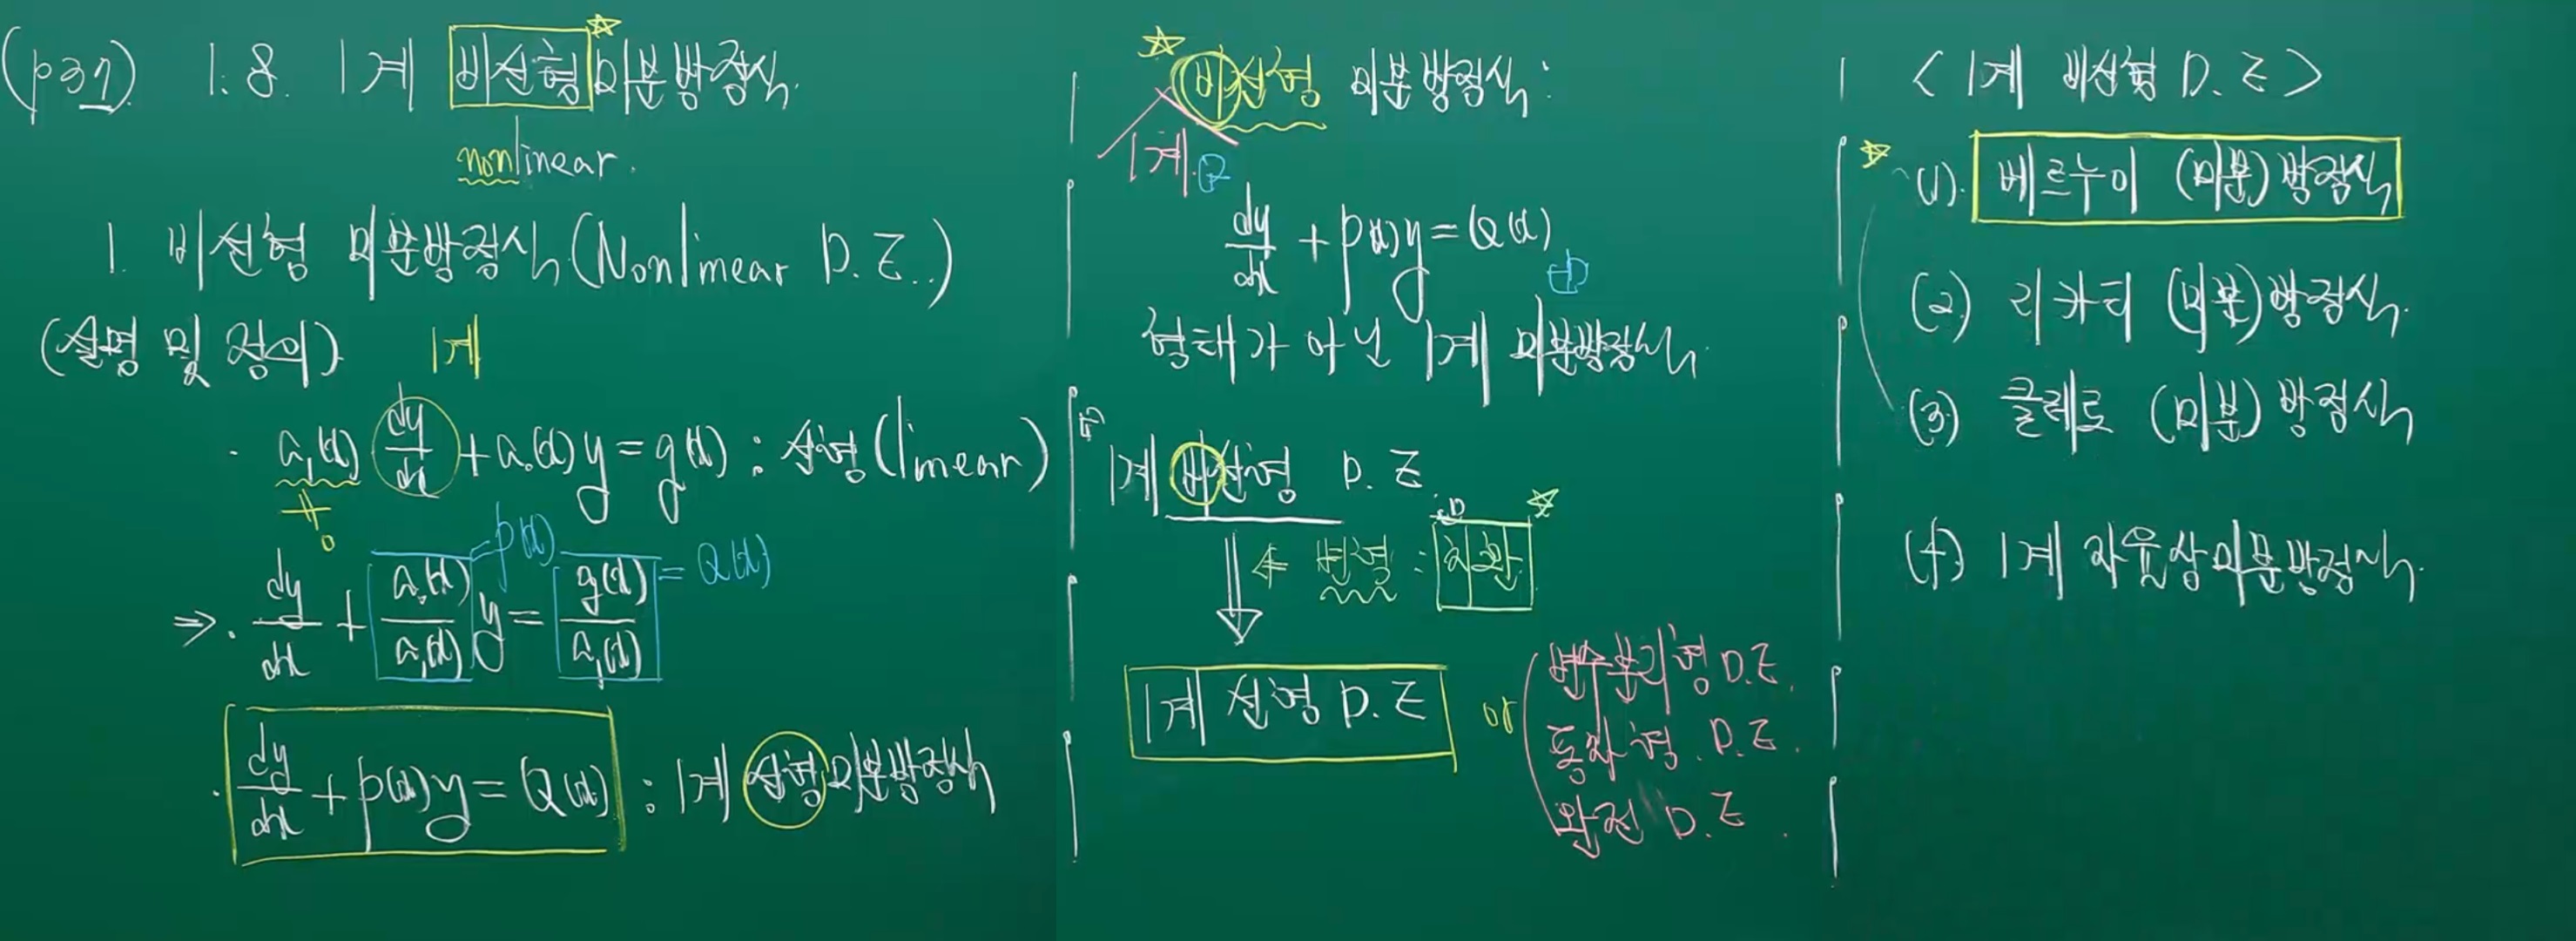 (p37) 1.8. 1계 비선형 미분방정식.
nonlinear.
1. 비선형 미분방정식 (Nonlinear D.E..)
(설명 및 정의) 1계
· a₁(x) dy/dx + a₀(x)y = g(x) : 선형 (linear)
≠ 0
⇒ · dy/dx + a₀(x)/a₁(x) y = g(x)/a₁(x)
= p(x)
= Q(x)
· dy/dx + p(x)y = Q(x) : 1계 선형 미분방정식
비선형 미분방정식 :
1계
dy/dx + p(x)y = Q(x)
형태가 아닌 1계 미분방정식.
1계 비선형 D.E
⇐ 변형 : 치환
1계 선형 D.E or
변수분리형 D.E.
동차형. D.E.
완전 D.E.
< 1계 비선형 D.E >
(1). 베르누이 (미분) 방정식
(2) 리카티 (미분) 방정식.
(3) 클레로 (미분) 방정식
(4) 1계 자율상미분방정식.